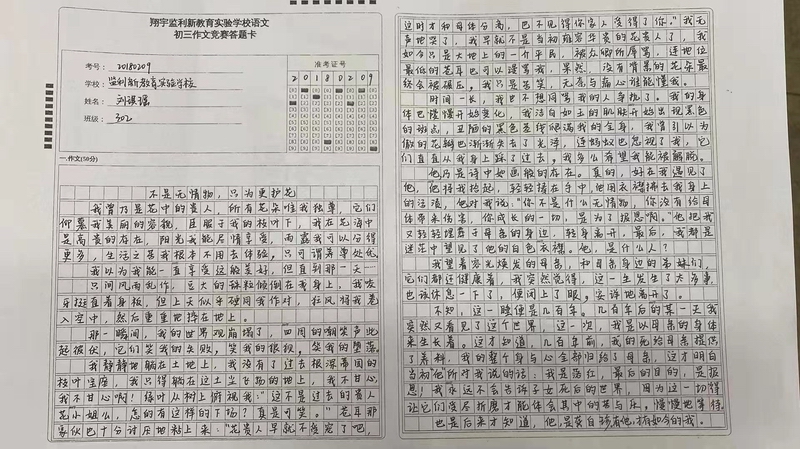 翔宇监利新教育实验学校语文
初三作文竞赛答题卡
考号：20180209
学校：监利新教育实验学校
姓名：刘琪瑶
班级：302
准考证号
20180209
一.作文(50分)
不是无情物，只为更护花
我曾乃是花中的贵人，所有花朵唯我独尊，它们
仰慕我美丽的容貌，且服于我的枝叶下，我在花海中
是高贵的存在，阳光我能尽情享受，雨露我可以分得
更多，生活之苦我根本不用去体验，只可谓养尊处优
我以为我能一直享受这般美好，但直到那一天……
只闻风雨乱作，豆大的珠粒倾倒在我身上，我咬
牙挺直着身板，但上天似乎硬同我作对，狂风将我卷
入空中，然后重重地摔在地上。
那一瞬间，我的世界观崩塌了，四周的嘲笑声此
起彼伏，它们笑我的失败，笑我的狼狈，笑我的堕落
我静静地躺在土地上，我没有了过去根深蒂固的
枝叶宝座，我只得躺在这土尘飞扬的地上，我不甘心，
我不甘心啊！绿叶从树上俯视我："这不是过去的贵人
花小姐么，怎的有这样的下场？真是可笑。"花茸那
家伙也十分讨厌地粘上来："花贵人早就不受宠了吧，
这时才和母体分离，巴不见得你家人受得了你。"我无
声地哭了，我早就不是当初雍容华贵的花贵人了，我
如今只是大地上的一介平民，被众卿所辱骂，连地位
最低的花茸也可以谩骂我，果然，没有背景的花朵最
终会被碾压，我只是苦笑，无奈与痛心谁能懂我。
时间一长，我也不想同骂我的人争执了。我的身
体也慢慢开始变化，我洁白如玉的肌肤开始出现黑色
的斑点，丑陋的黑色茎线爬满我的全身，我曾引以为
傲的花瓣也渐渐失去了光泽，连蚂蚁也忽视了我，它
们直直从我身上踩了过去。我多么希望我能被解脱。
他乃是诗中如画般的存在。真的，好在我遇见了
他，他将我拾起，轻轻捧在手中，他用衣襟拂去我身上
的污渍，他对我说："你不是什么无情物，你没有给母
体带来伤害，你成长的一切，是为了报恩啊。"他把我
又轻轻埋葬于母亲的身边，转身离开。最后，我都是
迷茫中望见了他的白色衣襟。他，是什么人？
我望着容光焕发的母亲，和母亲身边的弟妹们，
它们都还健康着，我突然觉得，这一生发生了太多事，
也该休息一下了，便闭上了眼，安详地离开了。
不知，这一睡便是几百年。几百年后的某一天我
突然又看见了这个世界，这一次，我是以母亲的身体
来生长着。这才知道，几百年前，我的死给母亲提供
了养料，我的整个身与心全部归给了母亲，这才明白
当初他所对我说的话：我是落红，最后的目的，是报
恩！我永远不会告诉子女死后的世界，因为这一切得
让它们受尽折磨才能体会其中的苦与乐，慢慢地等待。
也是后来才知道，他，是龚自珍，有他，才有如今的我。